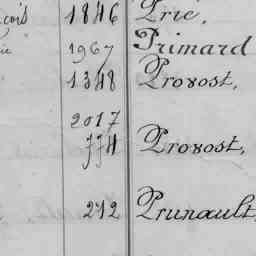 çois 1846 Prie,
ie 1967 Primard
1348 Provost,
2017
774 Provost,
272 Prunault,